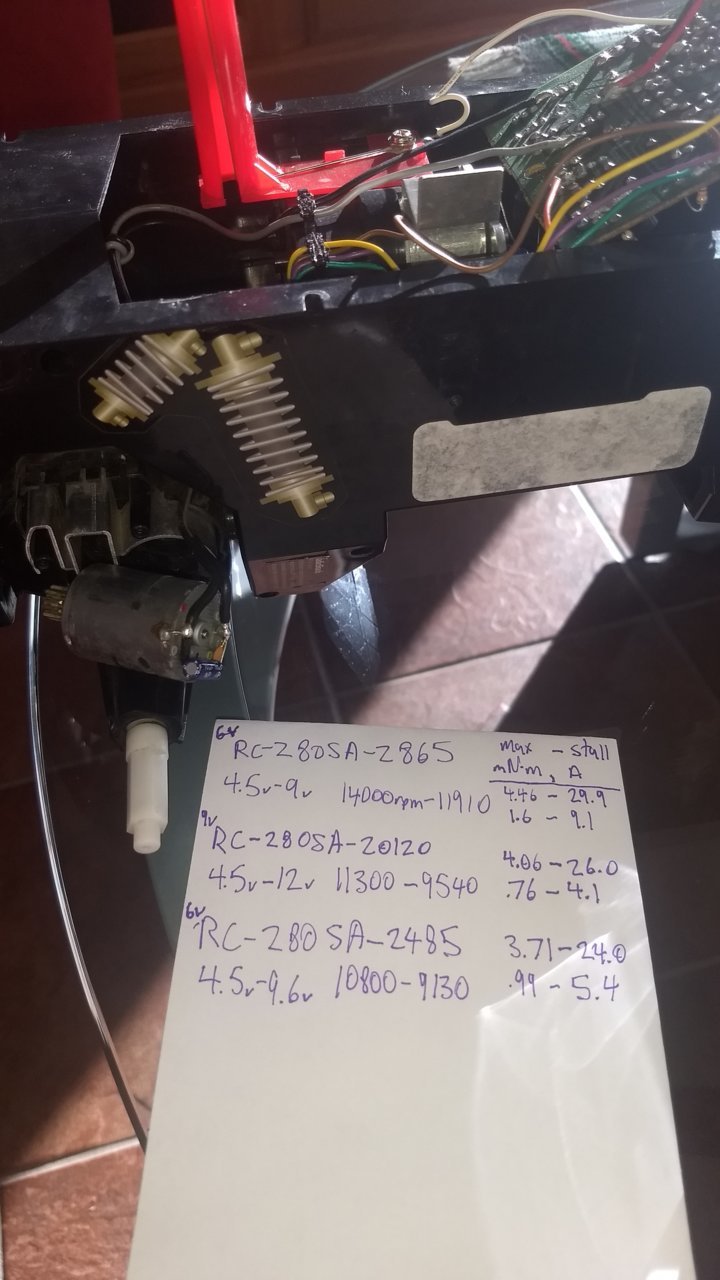 6v
RC-280SA-2865
4.5v-9v 14000rpm-11910
9v
RC-280SA-20120
4.5v-12v 11300-9540
6v
RC-280SA-2485
4.5v-9.6v 10800-9130
max - stall
mN·m, A
4.46 - 29.9
1.6 - 9.1
4.06-26.0
.76 - 4.1
3.71-24.0
.99 - 5.4